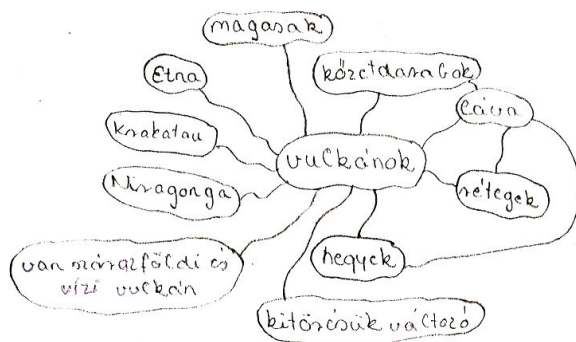 magasak
Etna
kőzetdarabok
láva
Krakatau
vulkánok
Niragonga
rétegek
van szárazföldi és
vízi vulkán
hegyek
kitörésük változó